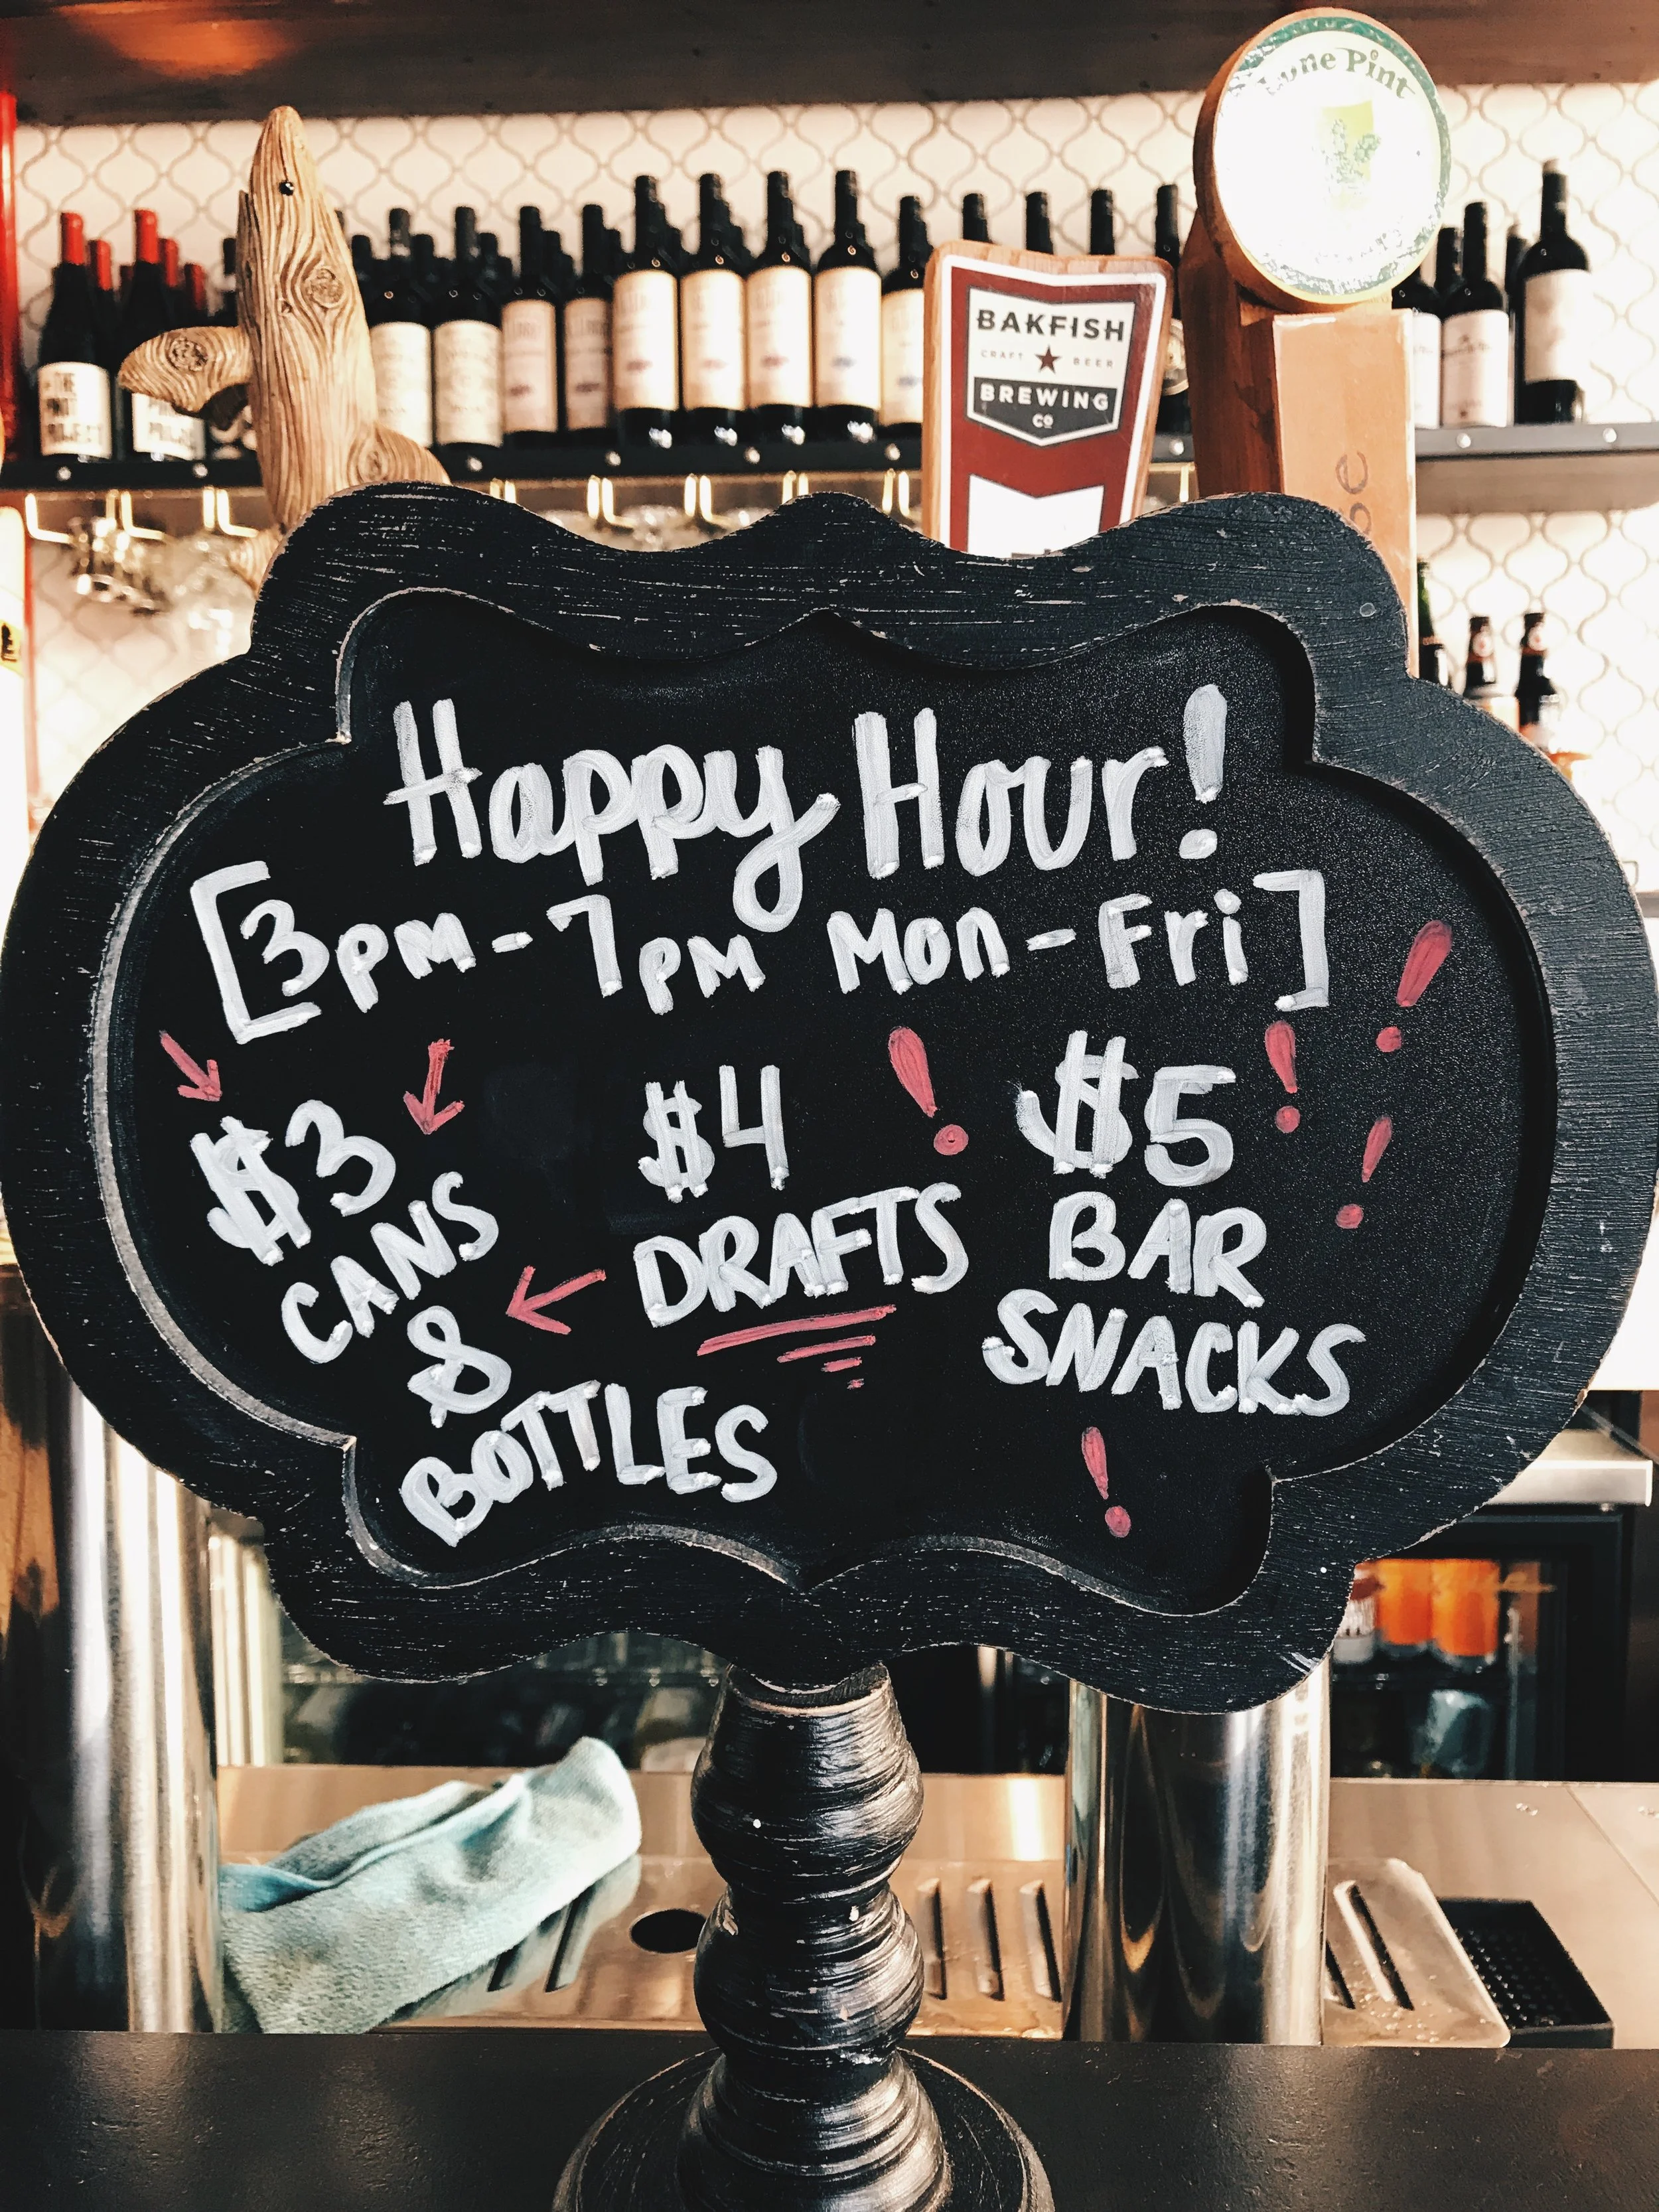 Lone Pint
BAKFISH
CRAFT BEER
BREWING
CO
THE
PINOT
PROJECT
Happy Hour!
[3pm-7pm Mon-Fri]
$3
CANS
&
BOTTLES
$4
DRAFTS
$5
BAR
SNACKS